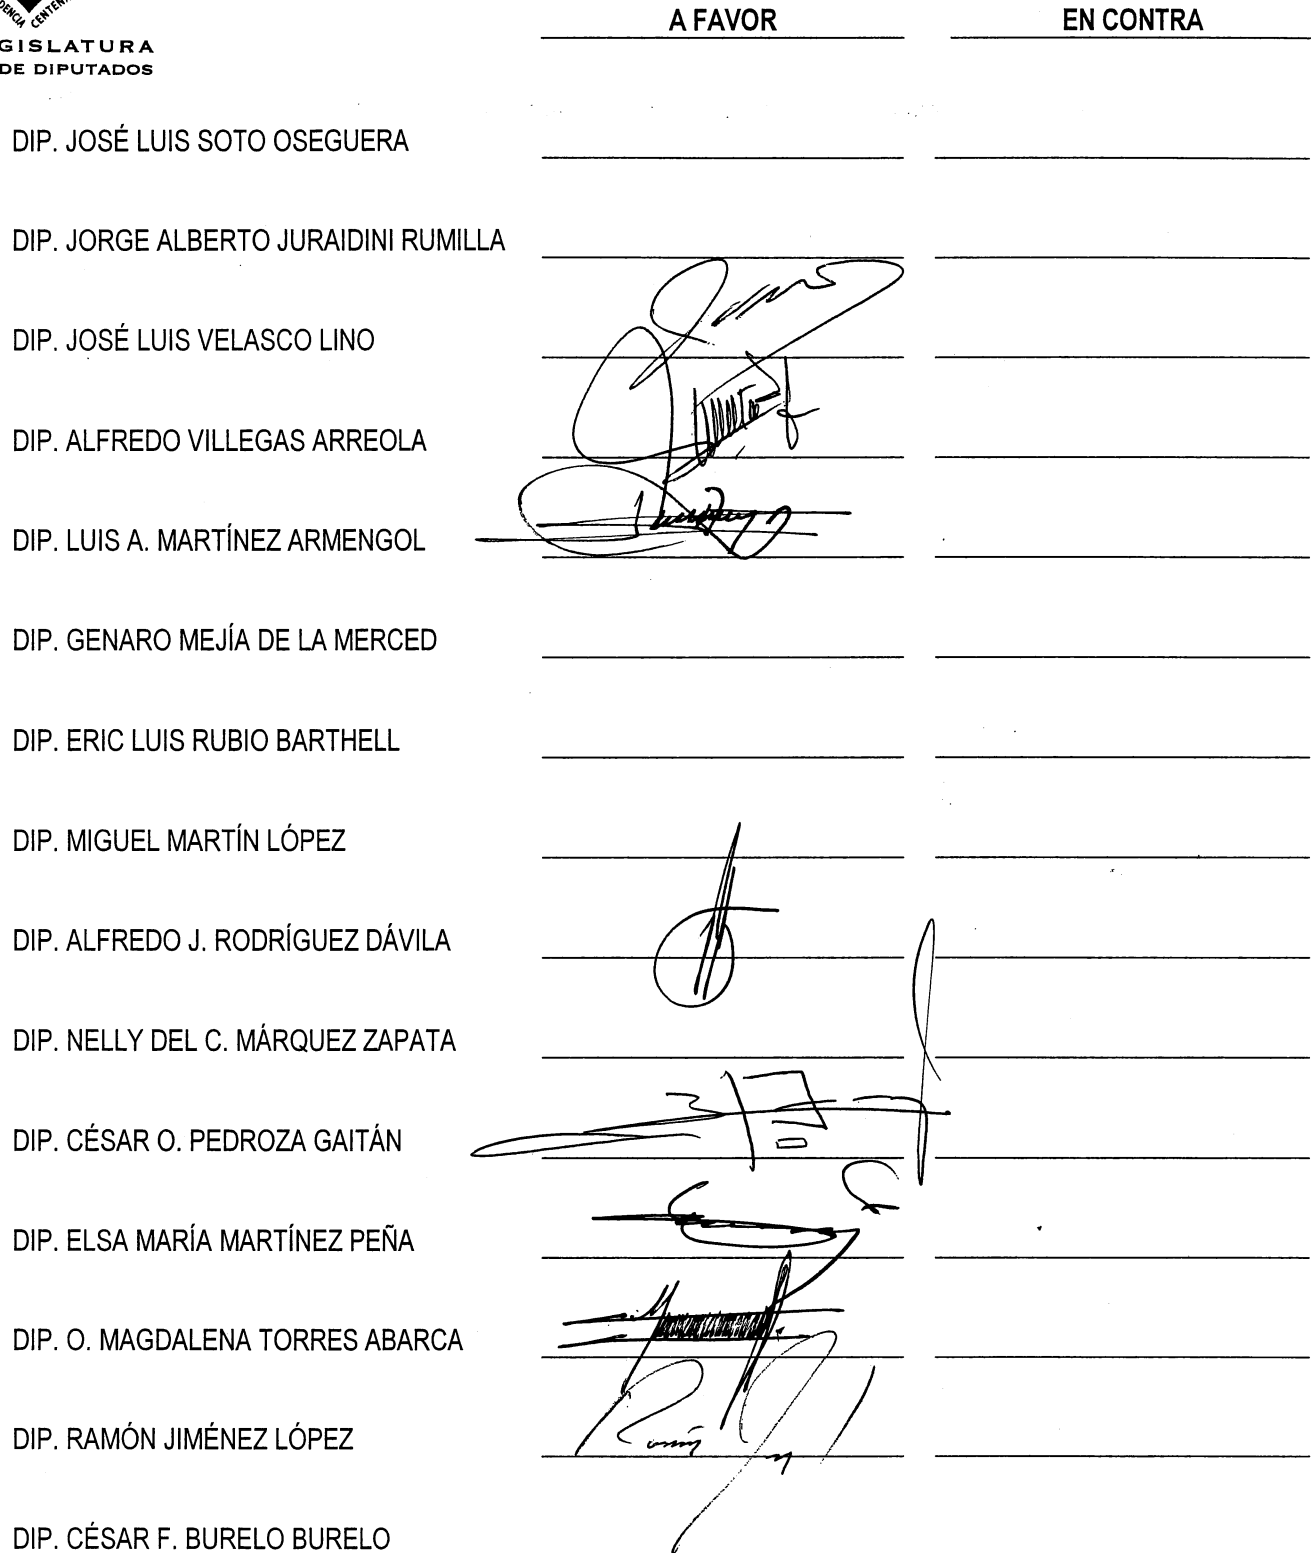 A FAVOR EN CONTRA
GISLATURA
DE DIPUTADOS
DIP. JOSÉ LUIS SOTO OSEGUERA
DIP. JORGE ALBERTO JURAIDINI RUMILLA
DIP. JOSÉ LUIS VELASCO LINO
DIP. ALFREDO VILLEGAS ARREOLA
DIP. LUIS A. MARTÍNEZ ARMENGOL
DIP. GENARO MEJÍA DE LA MERCED
DIP. ERIC LUIS RUBIO BARTHELL
DIP. MIGUEL MARTÍN LÓPEZ
DIP. ALFREDO J. RODRÍGUEZ DÁVILA
DIP. NELLY DEL C. MÁRQUEZ ZAPATA
DIP. CÉSAR O. PEDROZA GAITÁN
DIP. ELSA MARÍA MARTÍNEZ PEÑA
DIP. O. MAGDALENA TORRES ABARCA
DIP. RAMÓN JIMÉNEZ LÓPEZ
DIP. CÉSAR F. BURELO BURELO